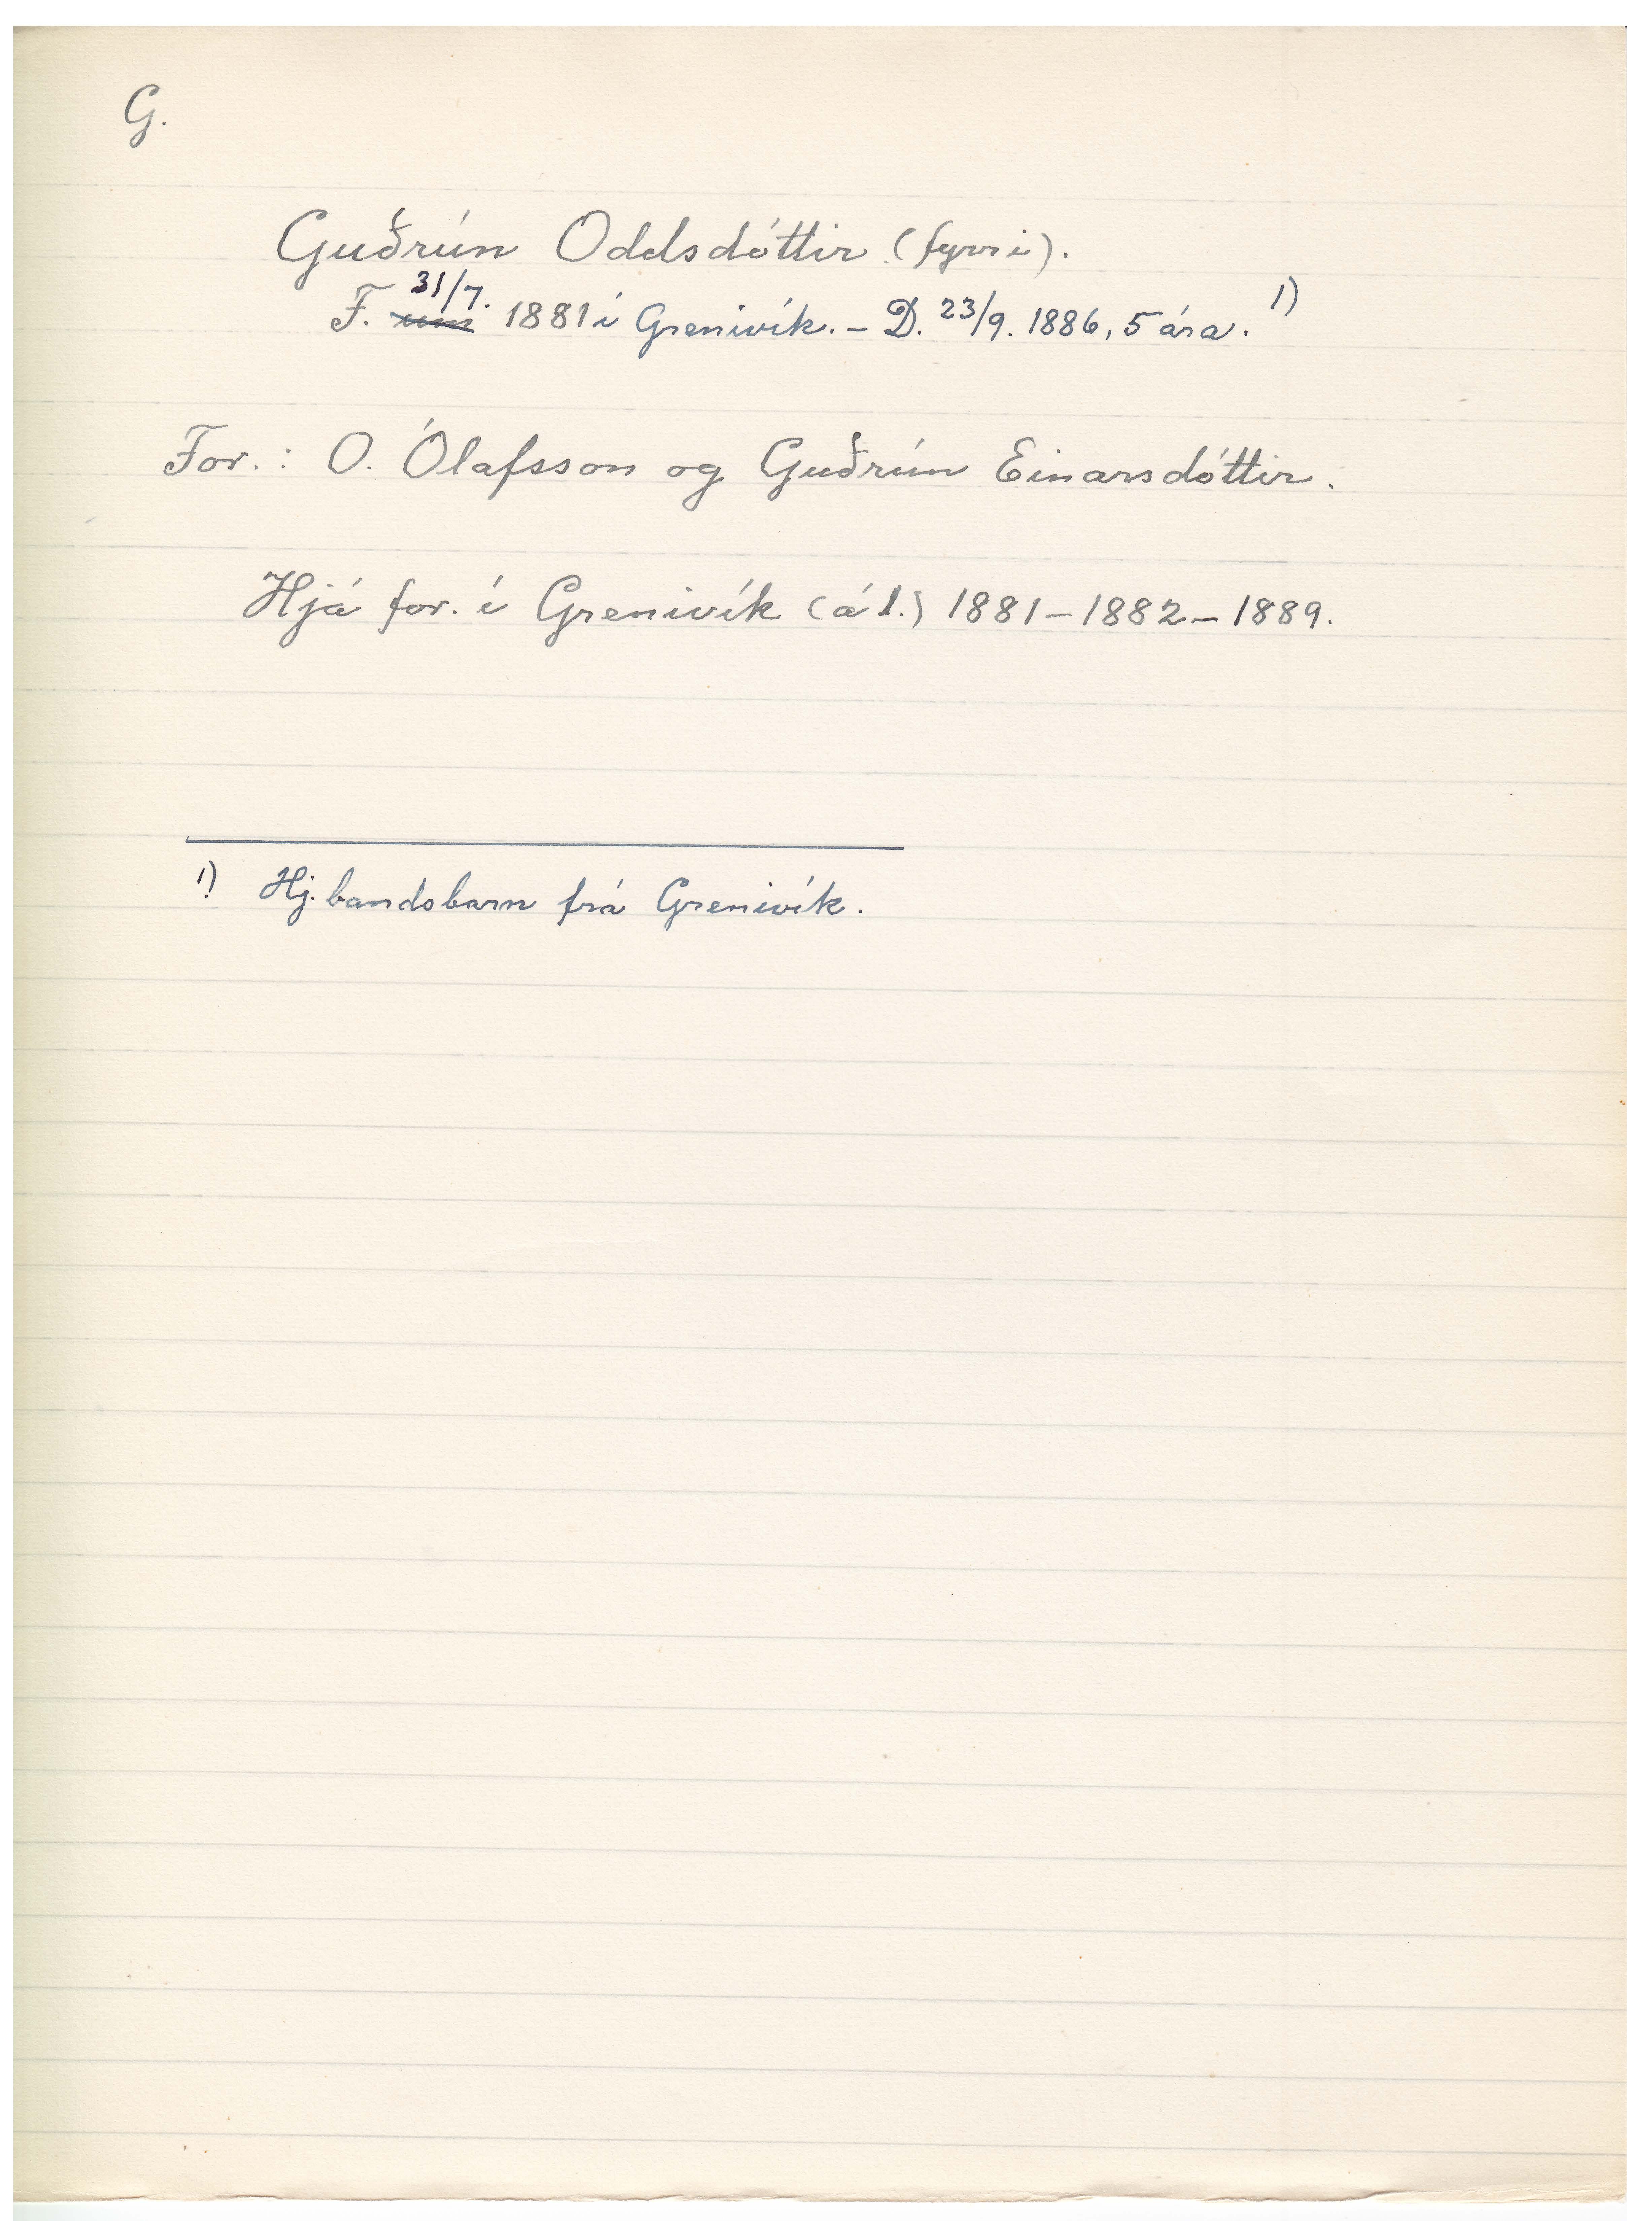 G.
Guðrún Oddsdóttir (fyrri).
F. um 31/7. 1881 í Grenivík. – D. 23/9. 1886, 5 ára. 1)
For.: O. Ólafsson og Guðrún Einarsdóttir.
Hjá for. í Grenivík (á 1.) 1881–1882–1889.
1) Hj.bandsbarn frá Grenivík.